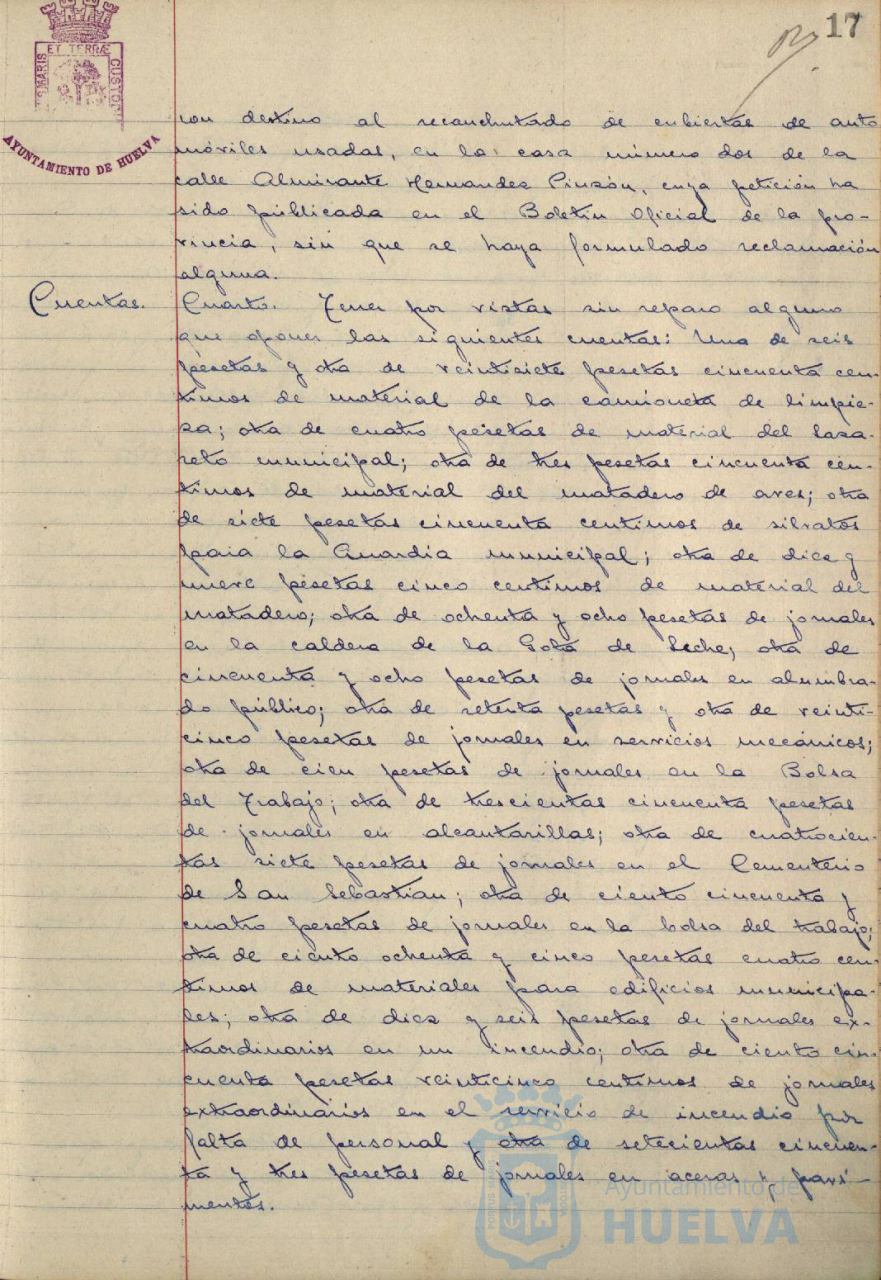 17
ET TERRÆ
CUSTO
MARIS
AYUNTAMIENTO DE HUELVA
con destino al recauchutado de cubiertas de auto
móviles usadas, en la casa número dos de la
calle Almirante Hernandez Pinzón, cuya petición ha
sido públicada en el Boletin Oficial de la pro-
vincia, sin que se haya formulado reclamación
alguna.
Cuentas.
Cuarto. Tener por vistas sin reparo alguno
que oponer las siguientes cuentas: Una de seis
pesetas y otra de veintisiete pesetas cincuenta cen-
timos de material de la camioneta de limpie-
za; otra de cuatro pesetas de material del Laza-
reto municipal; otra de tres pesetas cincuenta cen-
timos de material del matadero de aves; otra
de siete pesetas cincuenta centimos de silvatos
para la Guardia municipal; otra de diez y
nueve pesetas cinco centimos de material del
matadero; otra de ochenta y ocho pesetas de jornales
en la caldera de la Gota de Leche; otra de
cincuenta y ocho pesetas de jornales en alumbra-
do público; otra de setenta pesetas y otra de veinti-
cinco pesetas de jornales en servicios mecánicos;
otra de cien pesetas de jornales en la Bolsa
del Trabajo; otra de trescientas cincuenta pesetas
de jornales en alcantarillas; otra de cuatrocien-
tas siete pesetas de jornales en el Cementerio
de San Sebastian; otra de ciento cincuenta y
cuatro pesetas de jornales en la bolsa del trabajo;
otra de ciento ochenta y cinco pesetas cuatro cen-
timos de materiales para edificios municipa-
les; otra de diez y seis pesetas de jornales ex-
traordinarios en un incendio; otra de ciento cin-
cuenta pesetas veinticinco centimos de jornales
extraordinarios en el servicio de incendio por
falta de personal y otra de setecientas cincuen-
ta y tres pesetas de jornales en aceras y pavi-
mentos.
Ayuntamiento de
HUELVA